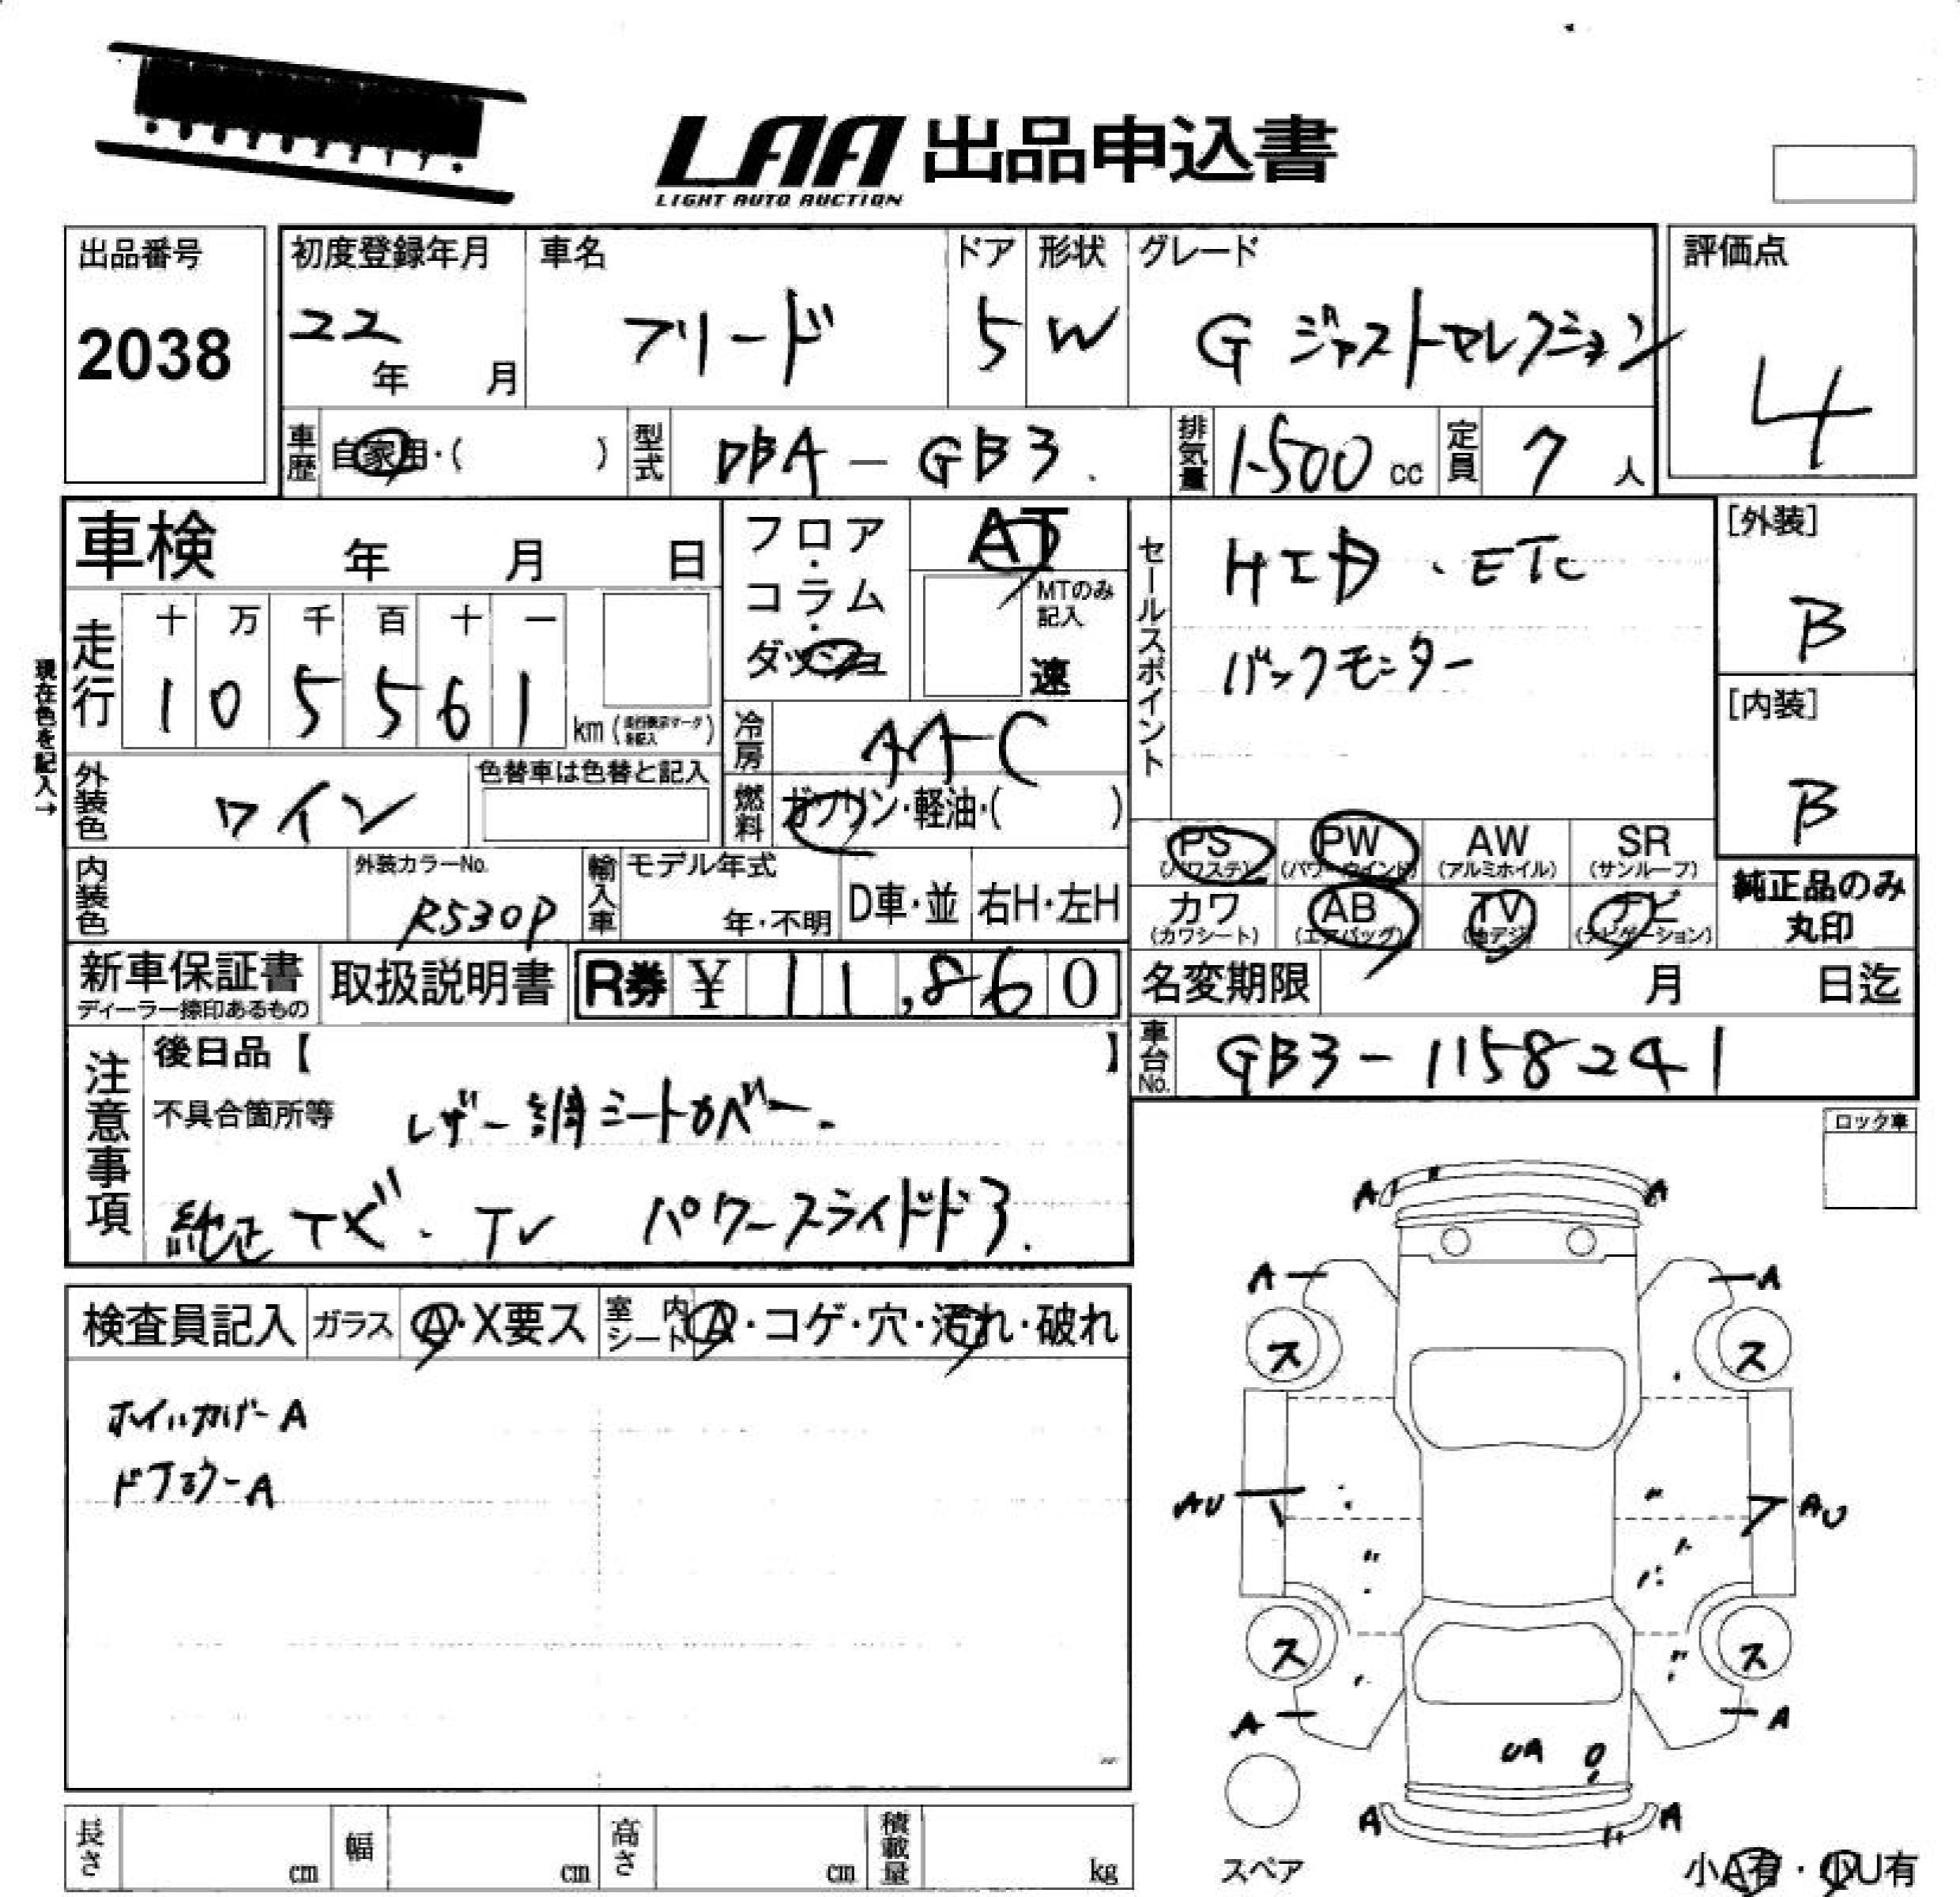 LAA 出品申込書
LIGHT AUTO AUCTION
出品番号
2038
初度登録年月
22
年 月
車名
フリード
ドア
5
形状
W
グレード
G ジャストセレクション
評価点
4
車歴
自家用・( )
型式
DBA-GB3.
排気量
1500 cc
定員
7 人
車検 年 月 日
走行
十 万 千 百 十 一
1 0 5 5 6 1
km (走行表示マークを記入)
現在色を記入→
フロア・コラム・ダッシュ
AT
MTのみ記入
速
冷房
AAC
燃料
ガソリン・軽油・( )
セールスポイント
HID.ETC
バックモニター
[外装]
B
[内装]
B
外装色
ワイン
色替車は色替と記入
内装色
外装カラーNo.
R530P
輸入車
モデル年式
年・不明
D車・並
右H・左H
PS
(パワステ)
PW
(パワーウインド)
AW
(アルミホイル)
SR
(サンルーフ)
カワ
(カワシート)
AB
(エアバッグ)
TV
(地デジ)
ナビ
(ナビゲーション)
純正品のみ
丸印
新車保証書
ディーラー捺印あるもの
取扱説明書
R券 ¥ 11,860
名変期限 月 日迄
車台No.
GB3-1158241
注意事項
後日品【 】
不具合箇所等
レザー調シートカバー.
純正ナビ.TV パワースライドドア.
ロック車
検査員記入
ガラス
A・X要ス
室内シート
A・コゲ・穴・汚れ・破れ
ホイルカバーA
ドアミラーA
A A
A A
ス ス
AU AU
ス ス
A A
UA
A A
スペア
小A有・小U有
長さ cm
幅 cm
高さ cm
積載量 kg